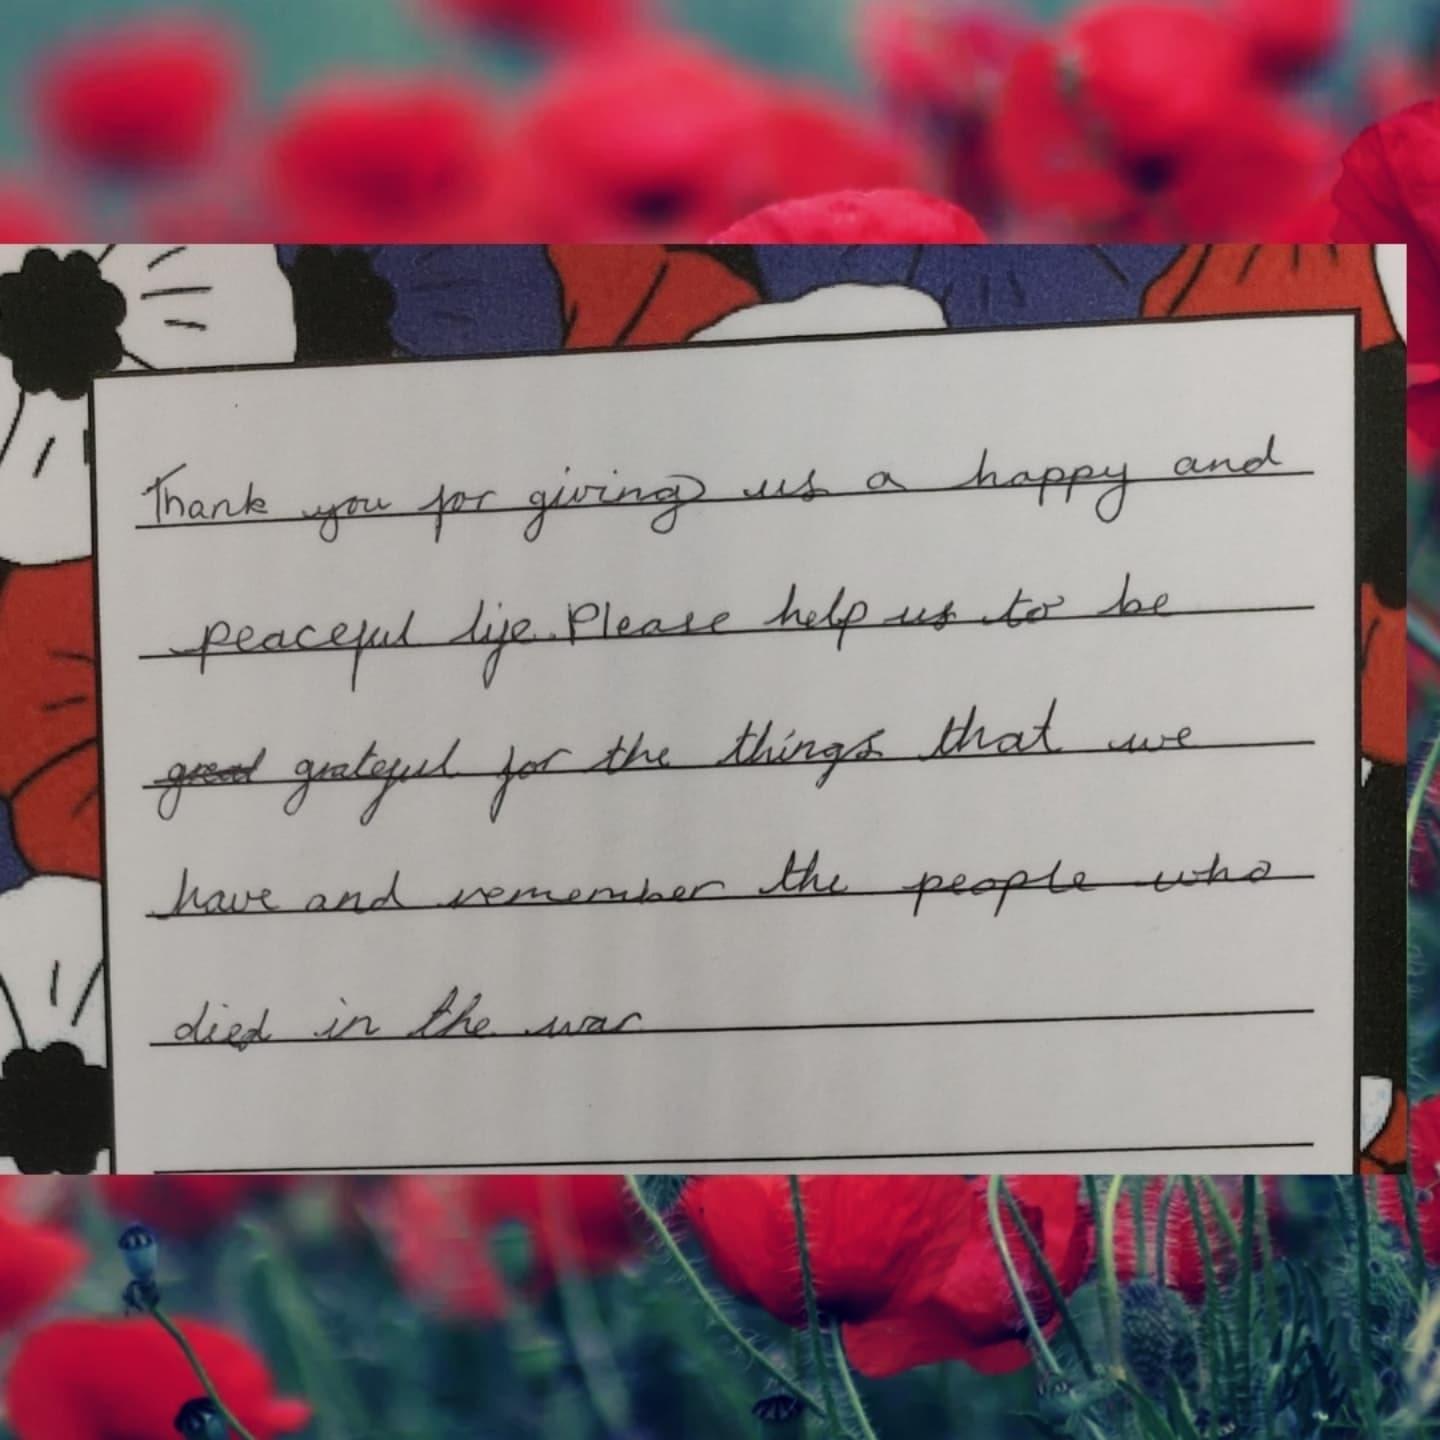 Thank you for giving us a happy and
peaceful life. Please help us to be
great grateful for the things that we
have and remember the people who
died in the war